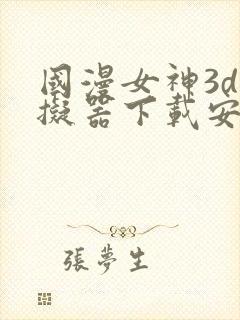 國漫女神3d
擬器下載安
張夢生